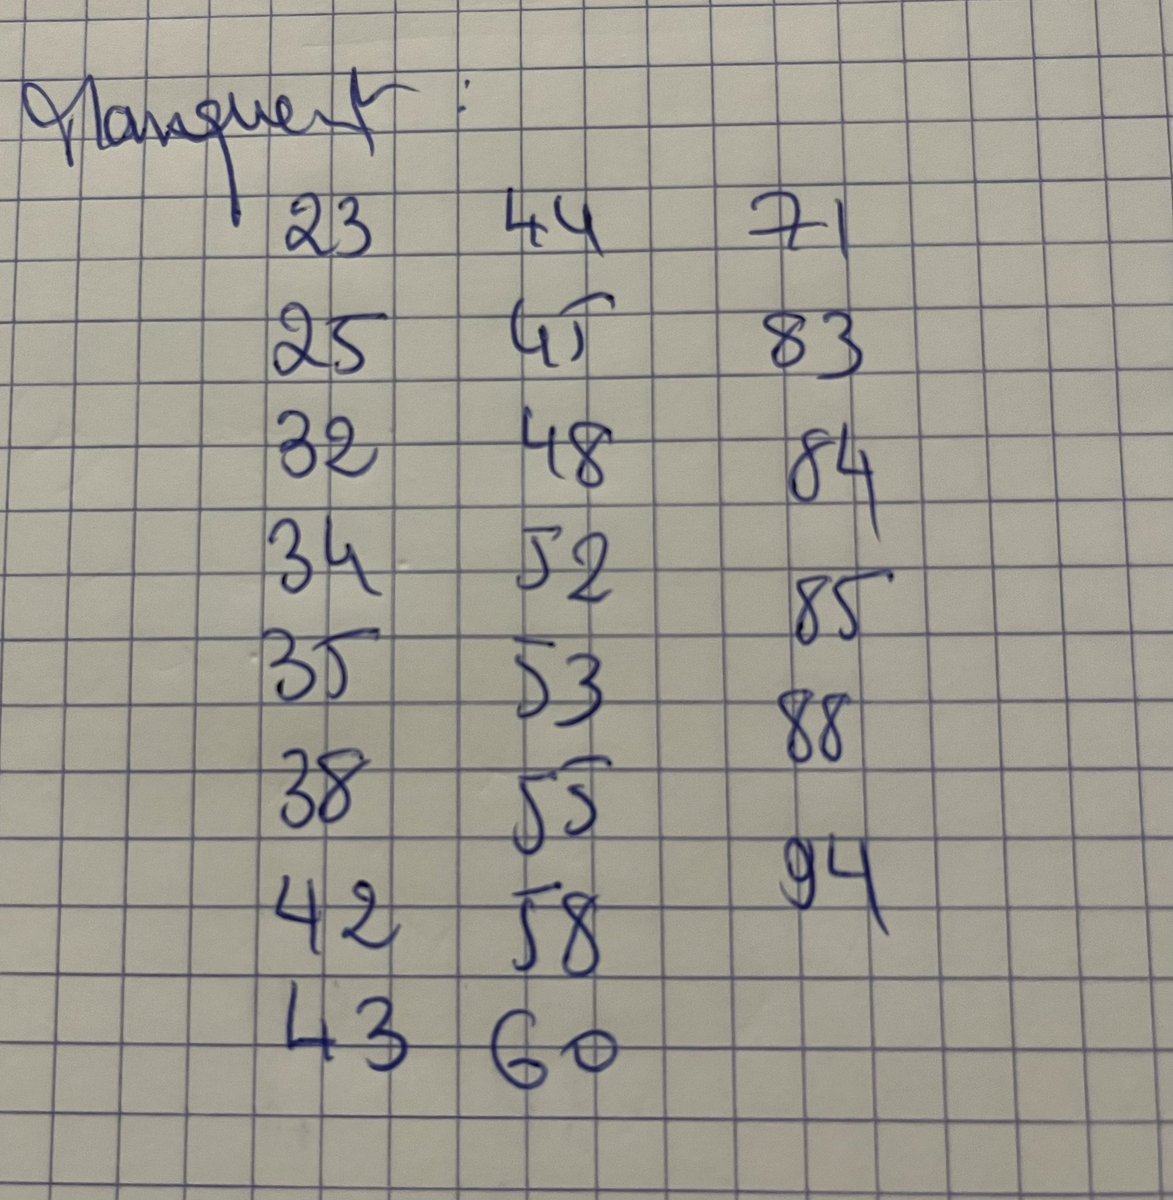 Manquent :
23 44 71
25 45 83
32 48 84
34 52 85
35 53 88
38 55 94
42 58
43 60